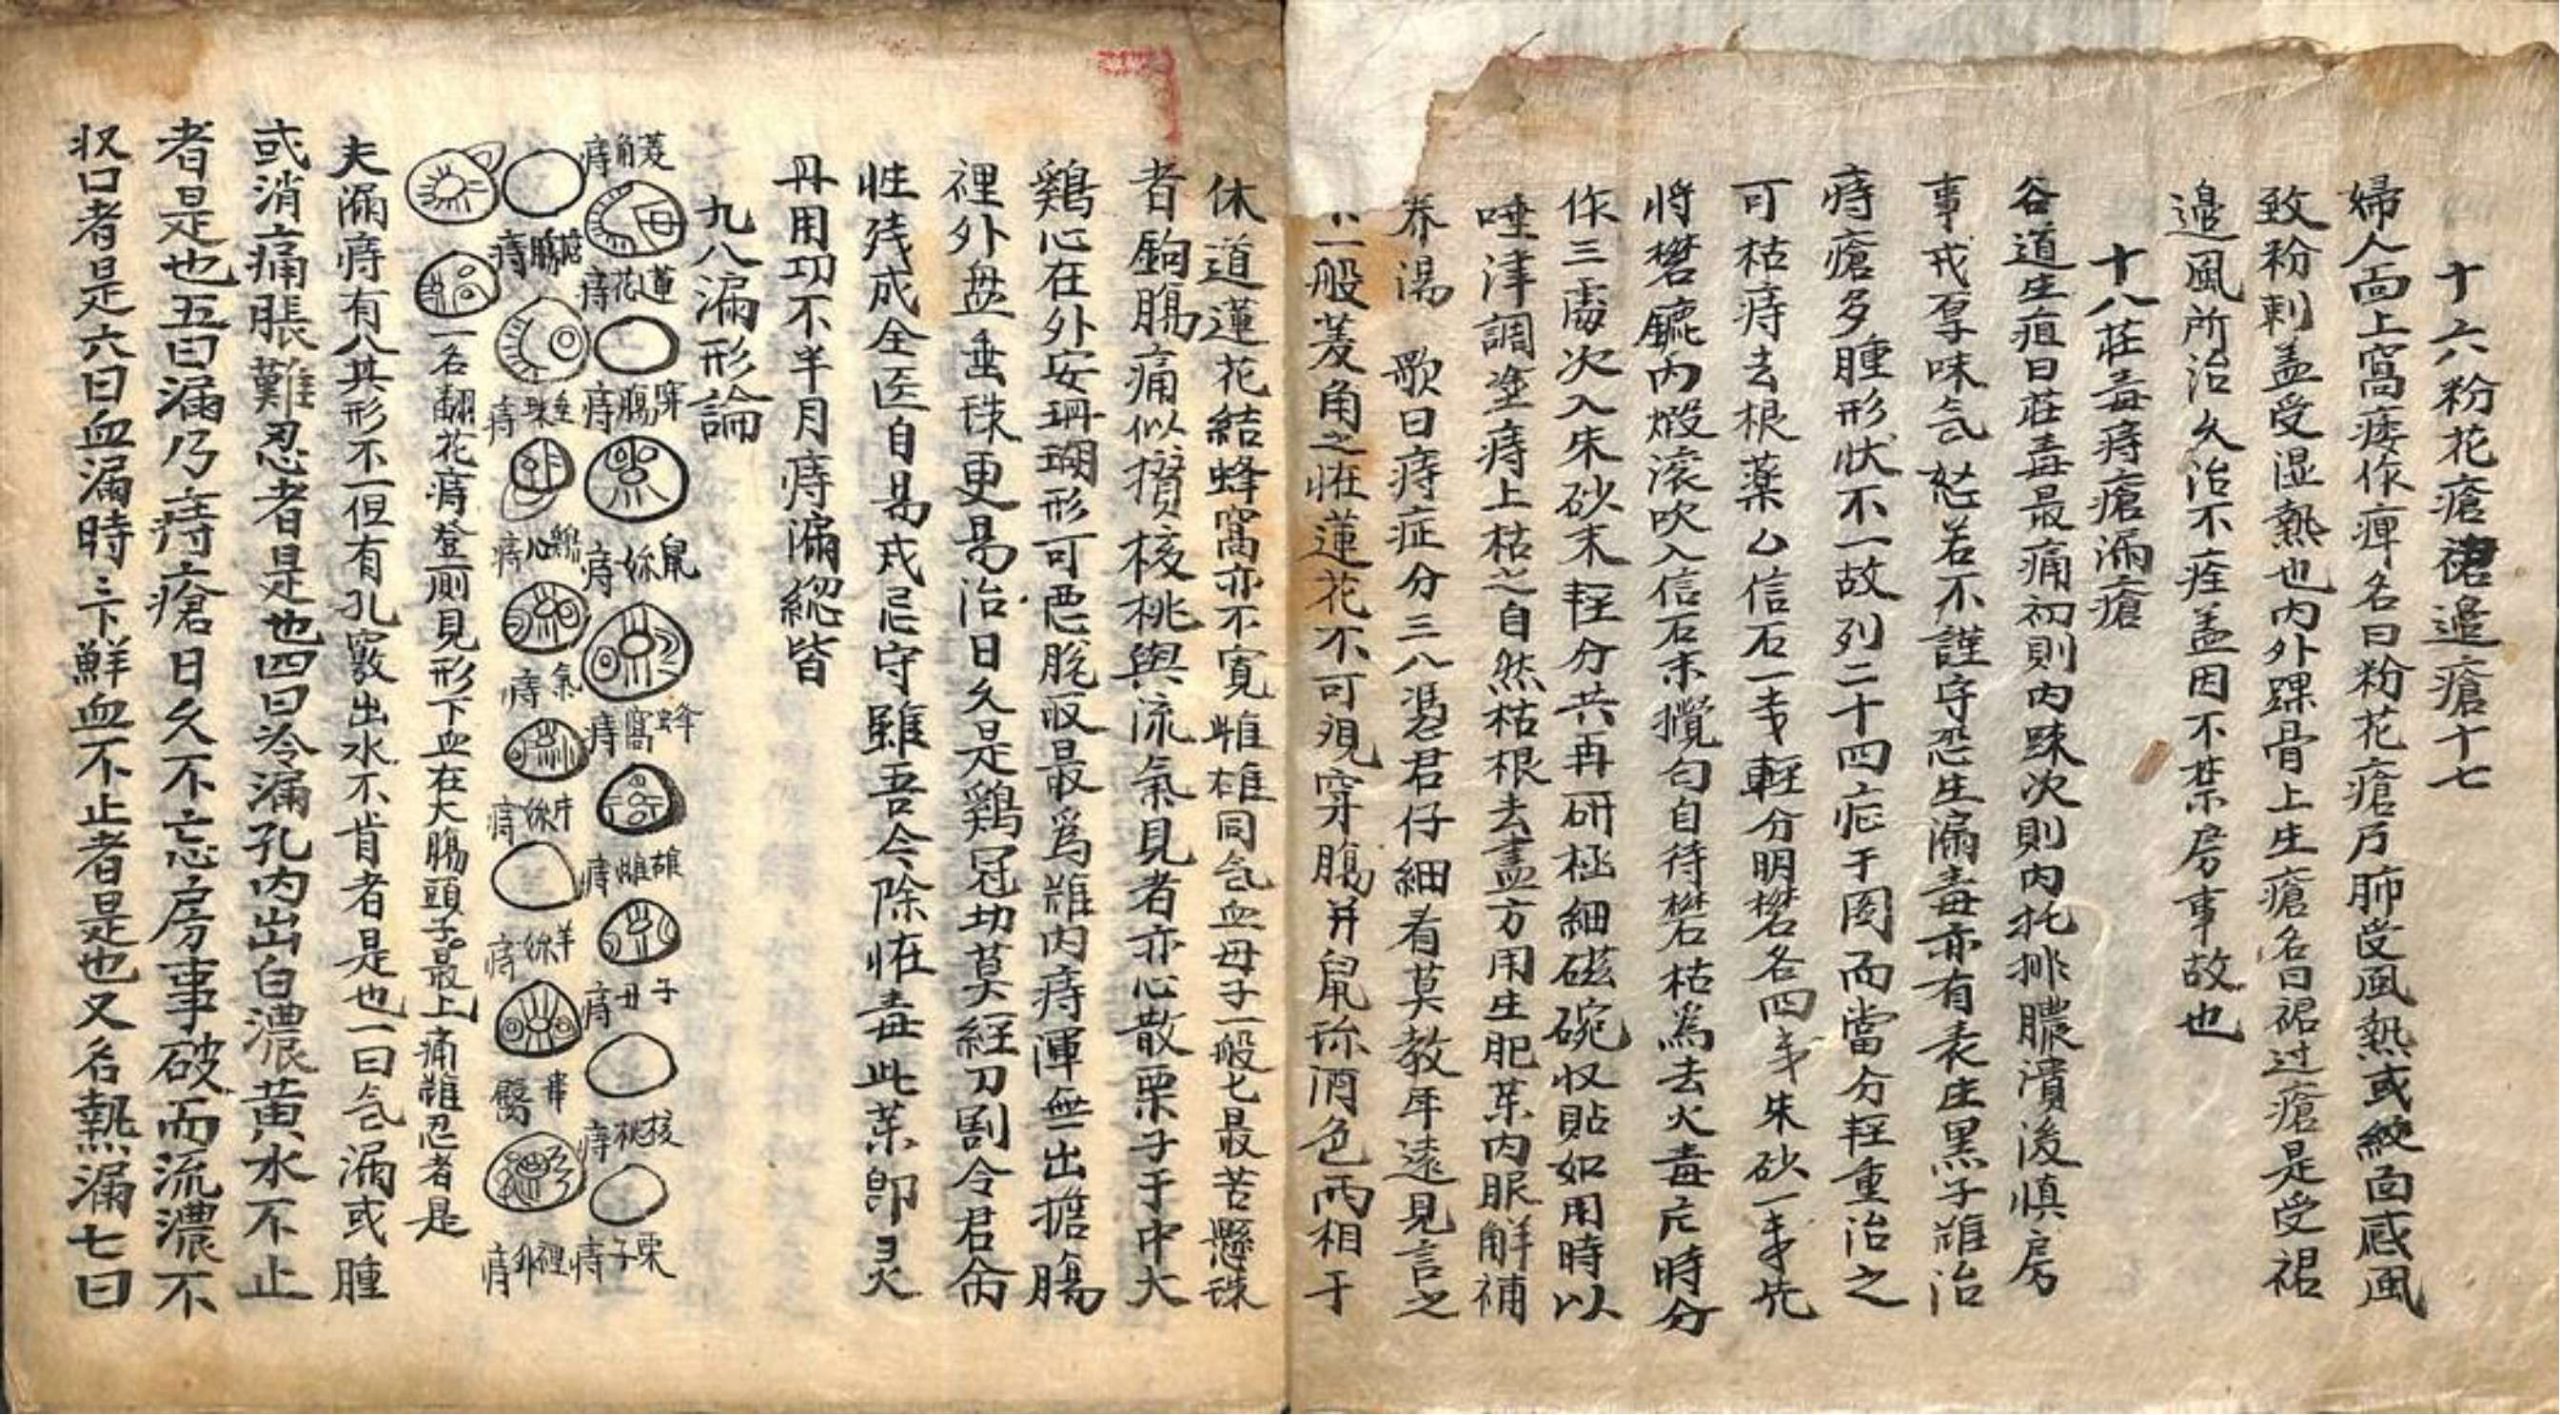 十六粉花瘡裙邉瘡十七
婦人面上窩痿作痺名曰粉花瘡乃肺受風熱或絞面感風
致粉刺盖受湿熱也内外踝骨上生瘡名曰裙过瘡是受裙
邉風所治久治不痊盖因不禁房事故也
十八莊毒痔瘡漏瘡
谷道生疽曰莊毒最痛初則内踈次則内托排膿濆後慎房
事戒厚味气怒若不謹守恐生漏毒亦有表庄黑子雖治
痔瘡多腫形状不一故列二十四症于图而當分輊重治之
可枯痔去根薬乙信石一㦮輊分明礬各四㦮朱砂一㦮先
將礬鑵内煅滚吹入信石末攪匀自待礬枯為去火毒庀時分
作三處次入朱砂末輊分共再研極細磁碗収貼如用時以
唾津調塗痔上枯之自然枯根去盡方用生肥茱内服觧補
养湯 歌曰痔症分三八憑君仔細看莫教年遠見言之
一般菱角之恠蓮花不可視穿腸并鼠㛴酒色两相于
休道蓮花結蜂窩亦不寛雌雄同气血母子一般七最苦懸珠
者鈎腸痛似攢核桃與流氣見者亦心散栗子于中大
鷄心在外安珊瑚形可悪脱収最爲雖内痔渾無出擔腸
裡外盘垂珠更易治日久是鷄冠切莫経刀割令君命
性残成全医自易戒忌守雖吾今除恠毒此茱卽灵
丹用功不半月痔漏総皆
九八漏形論
菱角痔
蓮花痔
穿腸痔
鼠妳痔
蜂窩痔
雄雌痔
子母痔
核桃痔
栗子痔
擔腸痔
垂珠痔
鷄心痔
氣痔
牛妳痔
羊妳痔
裡外痔
一名翻花痔登厠見形下血在大腸頭子最上痛雖忍者是
夫漏痔有八其形不一但有孔竅出水不肯者是也一曰气漏或腫
或消痛脹難忍者是也四曰冷漏孔内出白濃黄水不止
者是也五曰漏乃痔瘡日久不忘房事破而流濃不
収口者是六曰血漏時三下鮮血不止者是也又名熱漏七曰